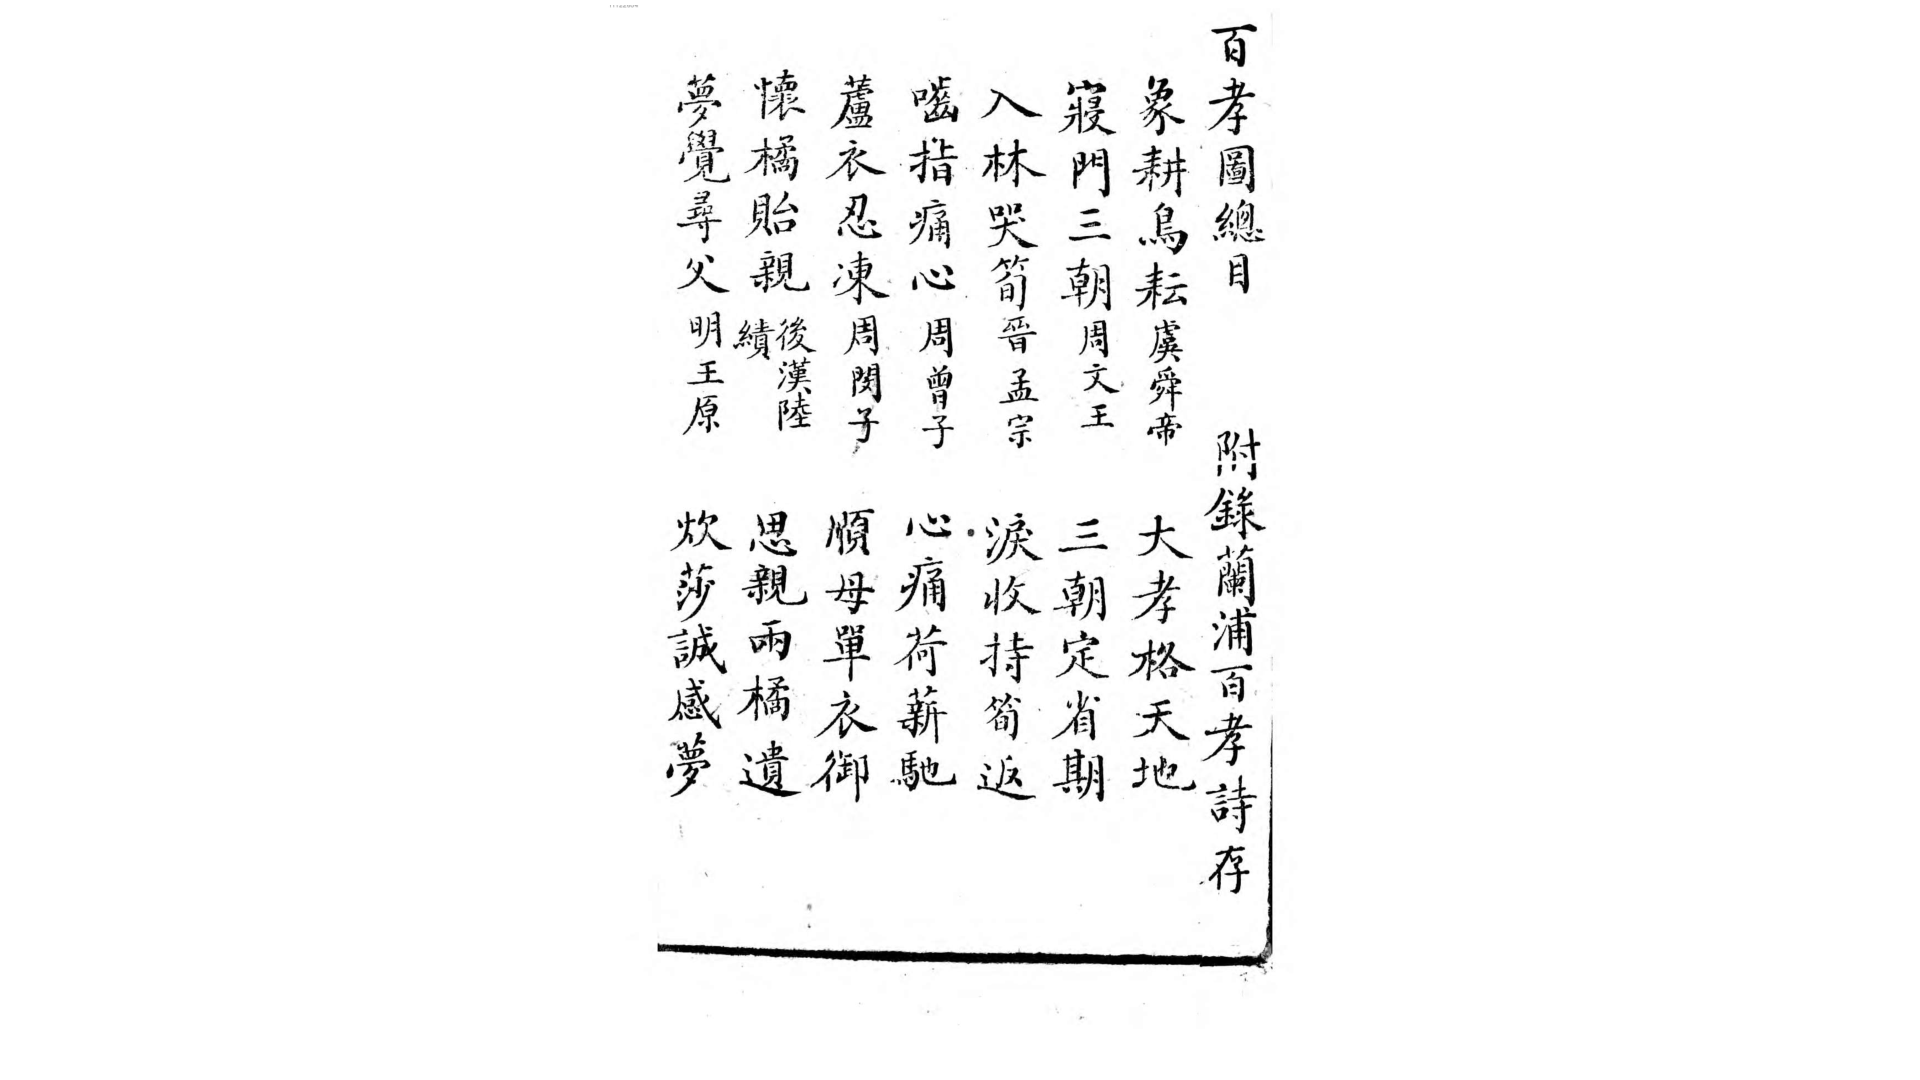 百孝圖總目 附錄蘭浦百孝詩存
象耕鳥耘虞舜帝 大孝格天地
寢門三朝周文王 三朝定省期
入林哭筍晉孟宗 淚收持筍返
嚙指痛心周曾子 心痛荷薪馳
蘆衣忍凍周閔子 順母單衣御
懷橘貽親後漢陸績 思親兩橘遺
夢覺尋父明王原 炊莎誠感夢